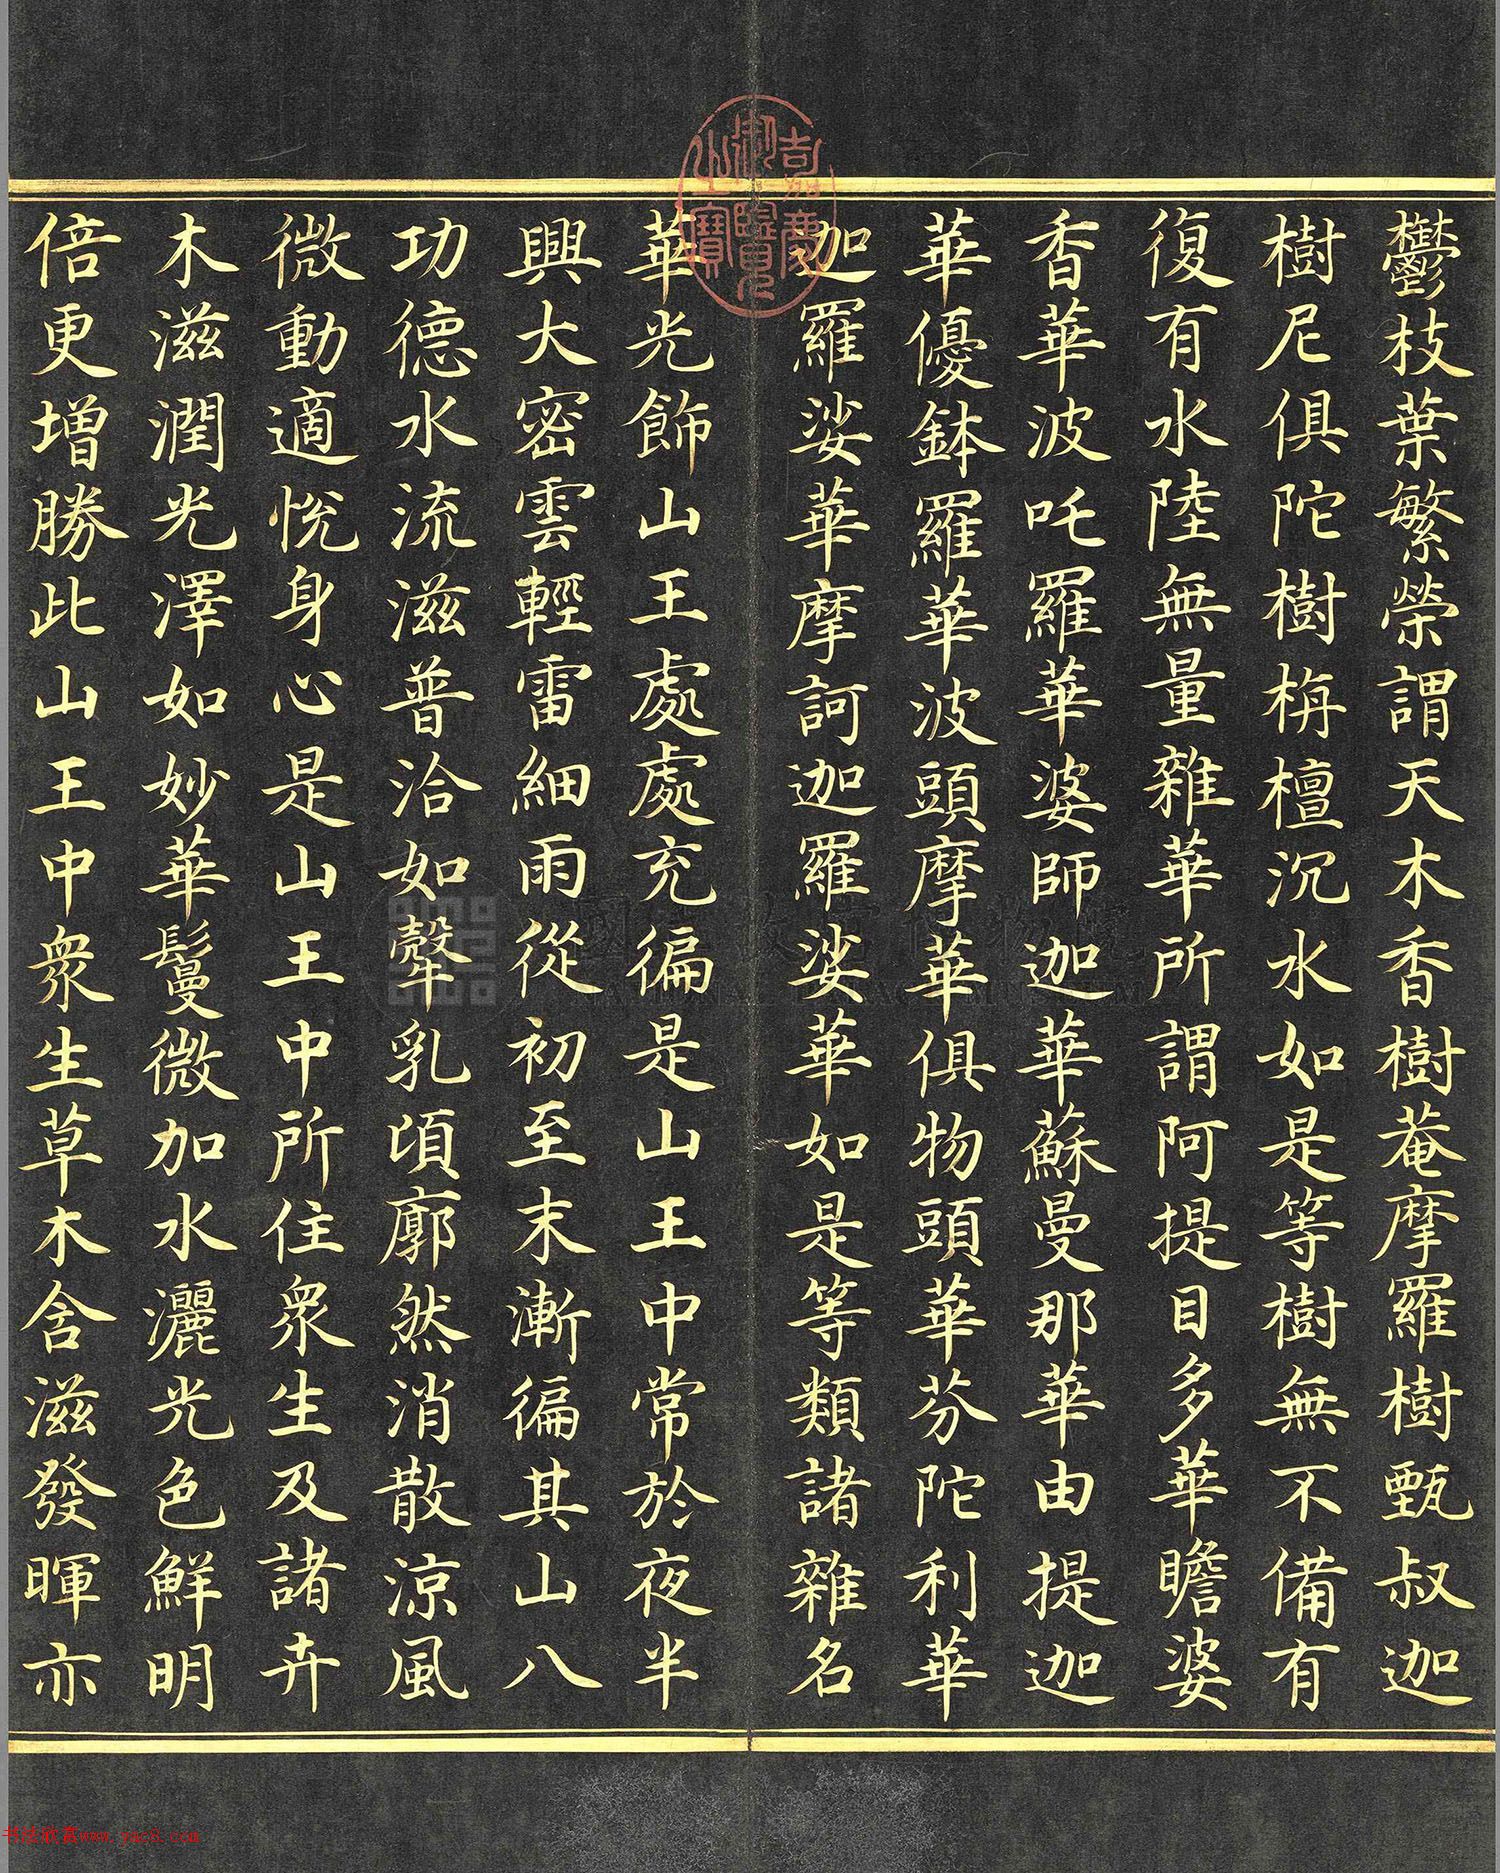 鬱枝葉繁榮謂天木香樹菴摩羅樹甄叔迦
樹尼俱陀樹栴檀沉水如是等樹無不備有
復有水陸無量雜華所謂阿提目多華瞻婆
香華波吒羅華婆師迦華蘇曼那華由提迦
華優鉢羅華波頭摩華俱物頭華芬陀利華
迦羅娑華摩訶迦羅娑華如是等類諸雜名
華光飾山王處處充徧是山王中常於夜半
興大密雲輕雷細雨從初至末漸徧其山八
功德水流滋普洽如乳頃廓然消散涼風
微動適悅身心是山王中所住眾生及諸卉
木滋潤光澤如妙華鬘微加水灑光色鮮明
倍更增勝此山王中眾生草木含滋發暉亦
嘉慶御覽之寶
國立故宮博物院
NATIONAL PALACE MUSEUM
书法欣赏www.yac8.com